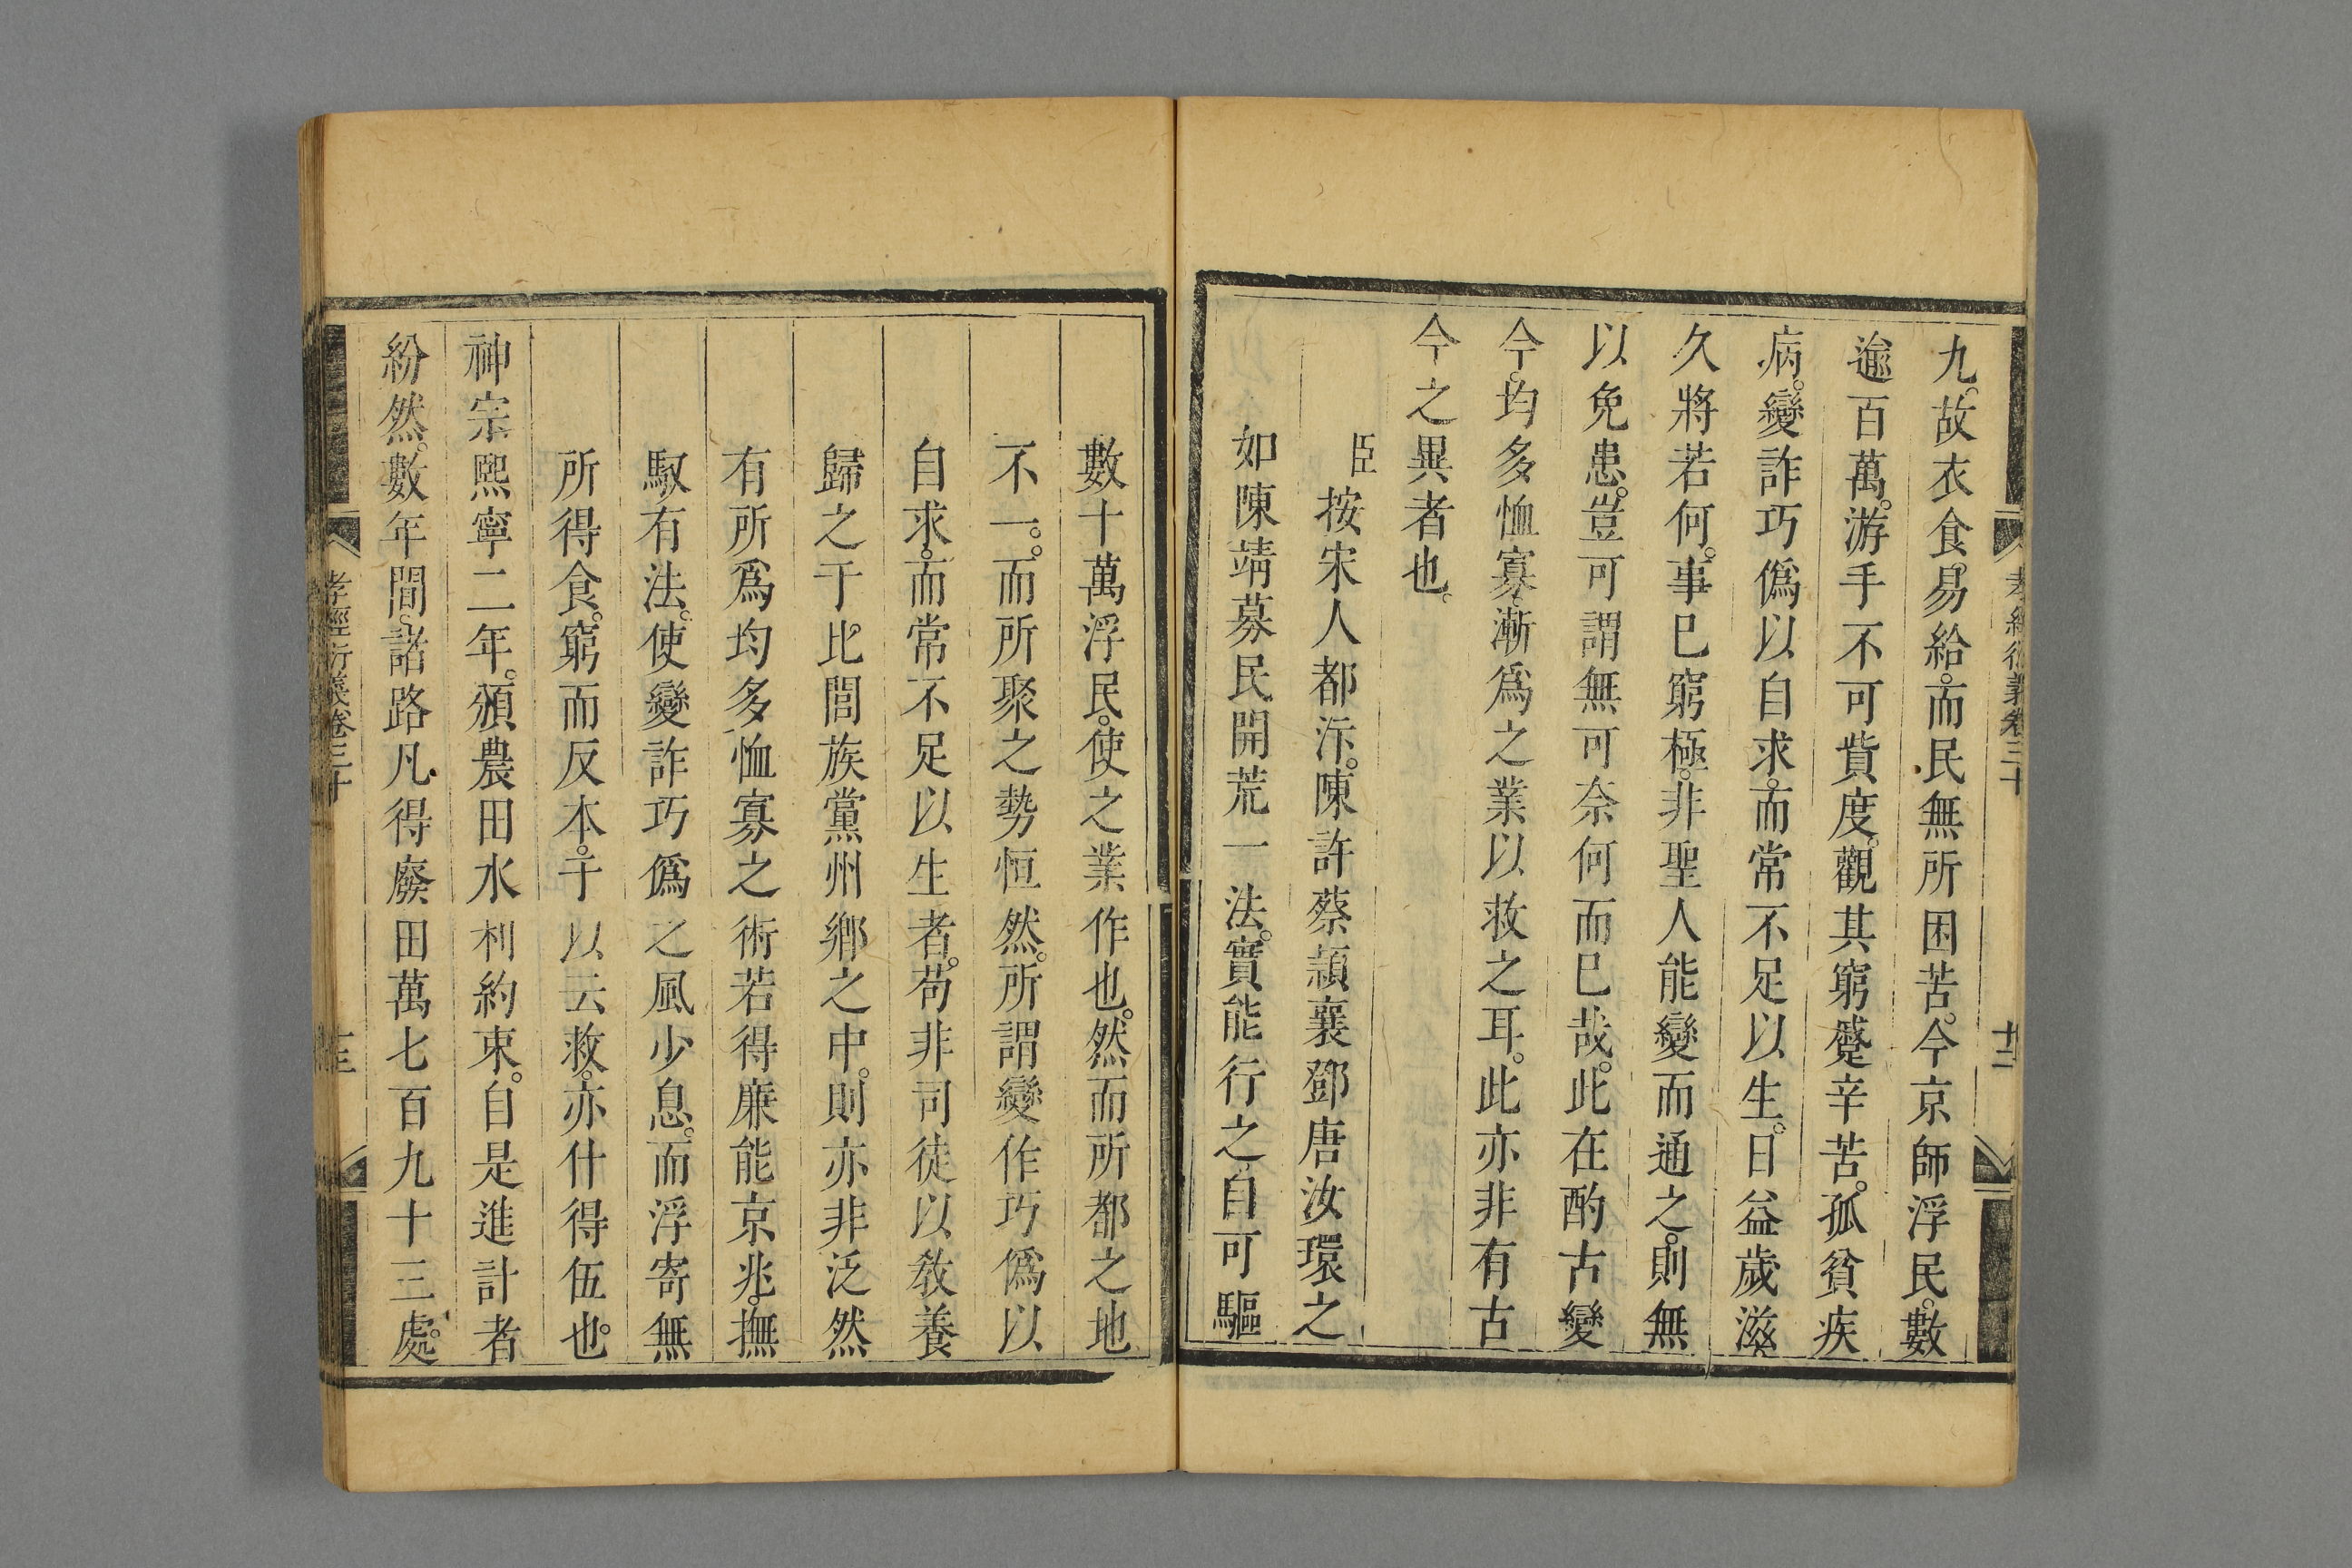 孝經衍義卷三十
十二
九。故衣食易給。而民無所困苦。今京師浮民。數
逾百萬。游手不可貲度。觀其窮蹙辛苦。孤貧疾
病。變詐巧僞以自求。而常不足以生。日益歲滋。
久將若何。事已窮極。非聖人能變而通之。則無
以免患。豈可謂無可奈何而已哉。此在酌古變
今。均多恤寡。漸爲之業以救之耳。此亦非有古
今之異者也。
臣按宋人都汴。陳許蔡潁襄鄧唐汝環之
如陳靖募民開荒一法。實能行之。自可驅
數十萬浮民。使之業作也。然而所都之地
不一。而所聚之勢恒然。所謂變作巧僞以
自求。而常不足以生者。苟非司徒以教養
歸之于比閭族黨州鄉之中。則亦非泛然
有所爲均多恤寡之術若得廉能京兆。撫
馭有法。使變詐巧僞之風少息。而浮寄無
所得食。窮而反本。于以云救。亦什得伍也。
神宗熙寧二年。頒農田水利約束。自是進計者
紛然。數年間。諸路凡得廢田萬七百九十三處。
孝經衍義卷三十
十三